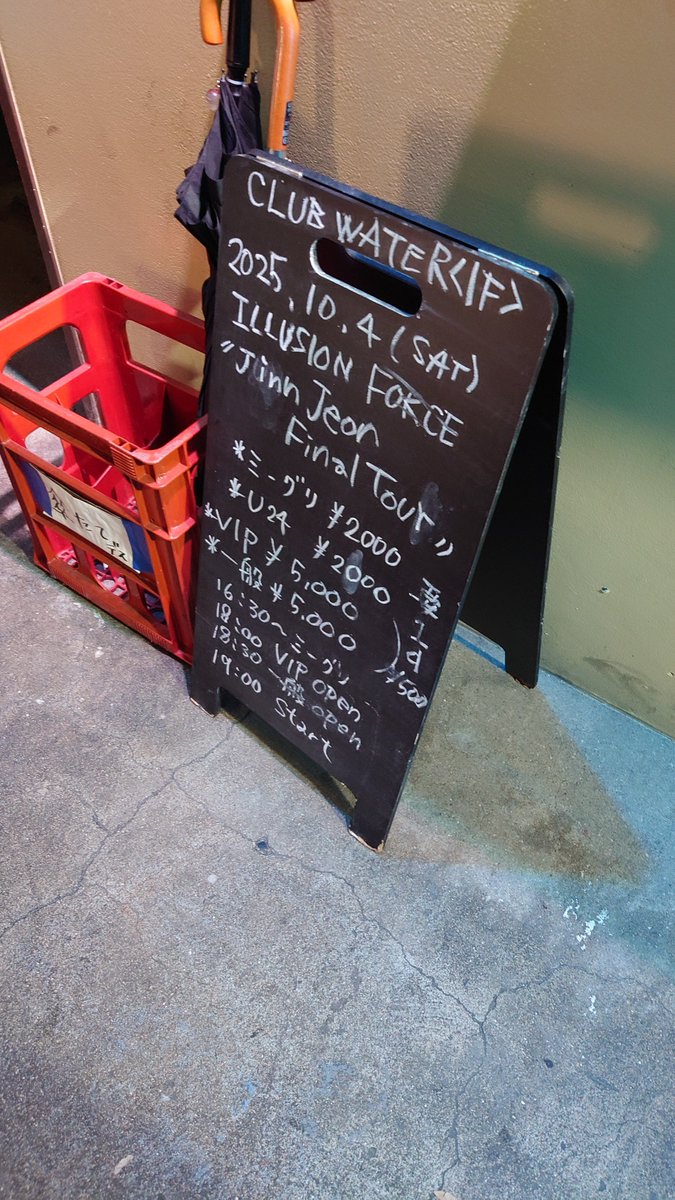 CLUB WATER〈1F〉
2025.10.4(SAT)
ILLUSION FORCE
"Jinn Jeon
Final Tour"
*ミーグリ ¥2000
*U24 ¥2000
*VIP ¥5,000
*一般 ¥5.000
1d
¥500
16:30~ミーグリ
18:00 VIP open
18:30 一般 open
19:00 Start
傘たてです